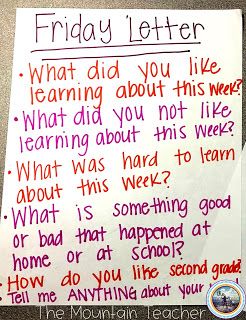 Friday Letter
• What did you like
learning about this week?
• What did you not like
learning about this week?
• What was hard to learn
about this week?
• What is something good
or bad that happened at
home or at school?
• How do you like second grade?
Tell me ANYTHING about your
The Mountain Teacher